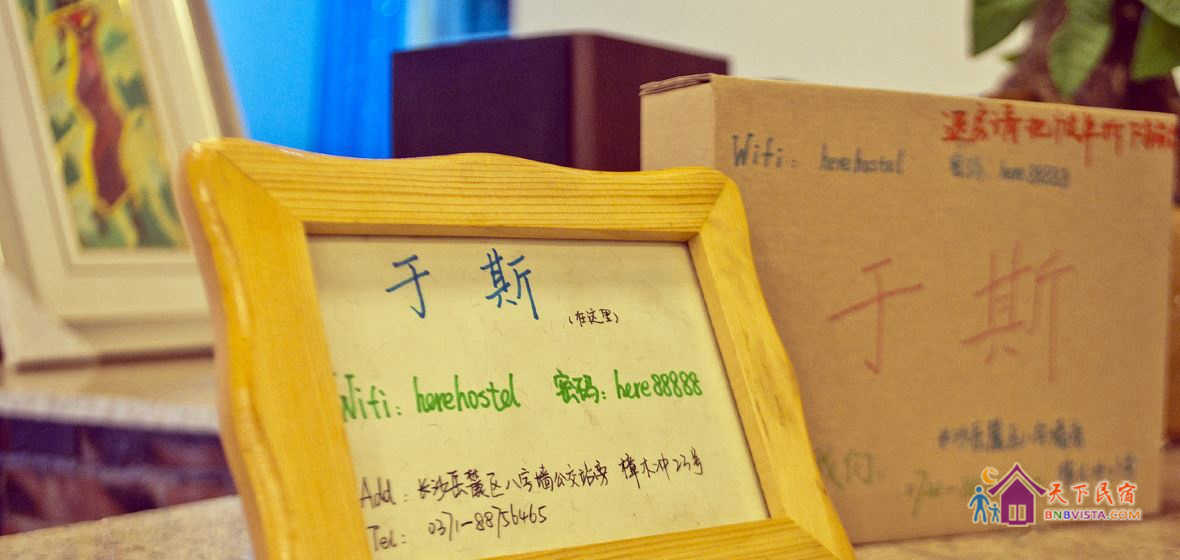 于斯
(在这里)
Wifi: herehostel 密码: here88888
Add: 长沙岳麓区八字墙公交站旁 樟木冲23号
Tel: 0371-88756465
退房请把
Wifi: herehostel 密码: here88888
于斯
长沙岳麓区八字墙
天下民宿
BNBVISTA.COM